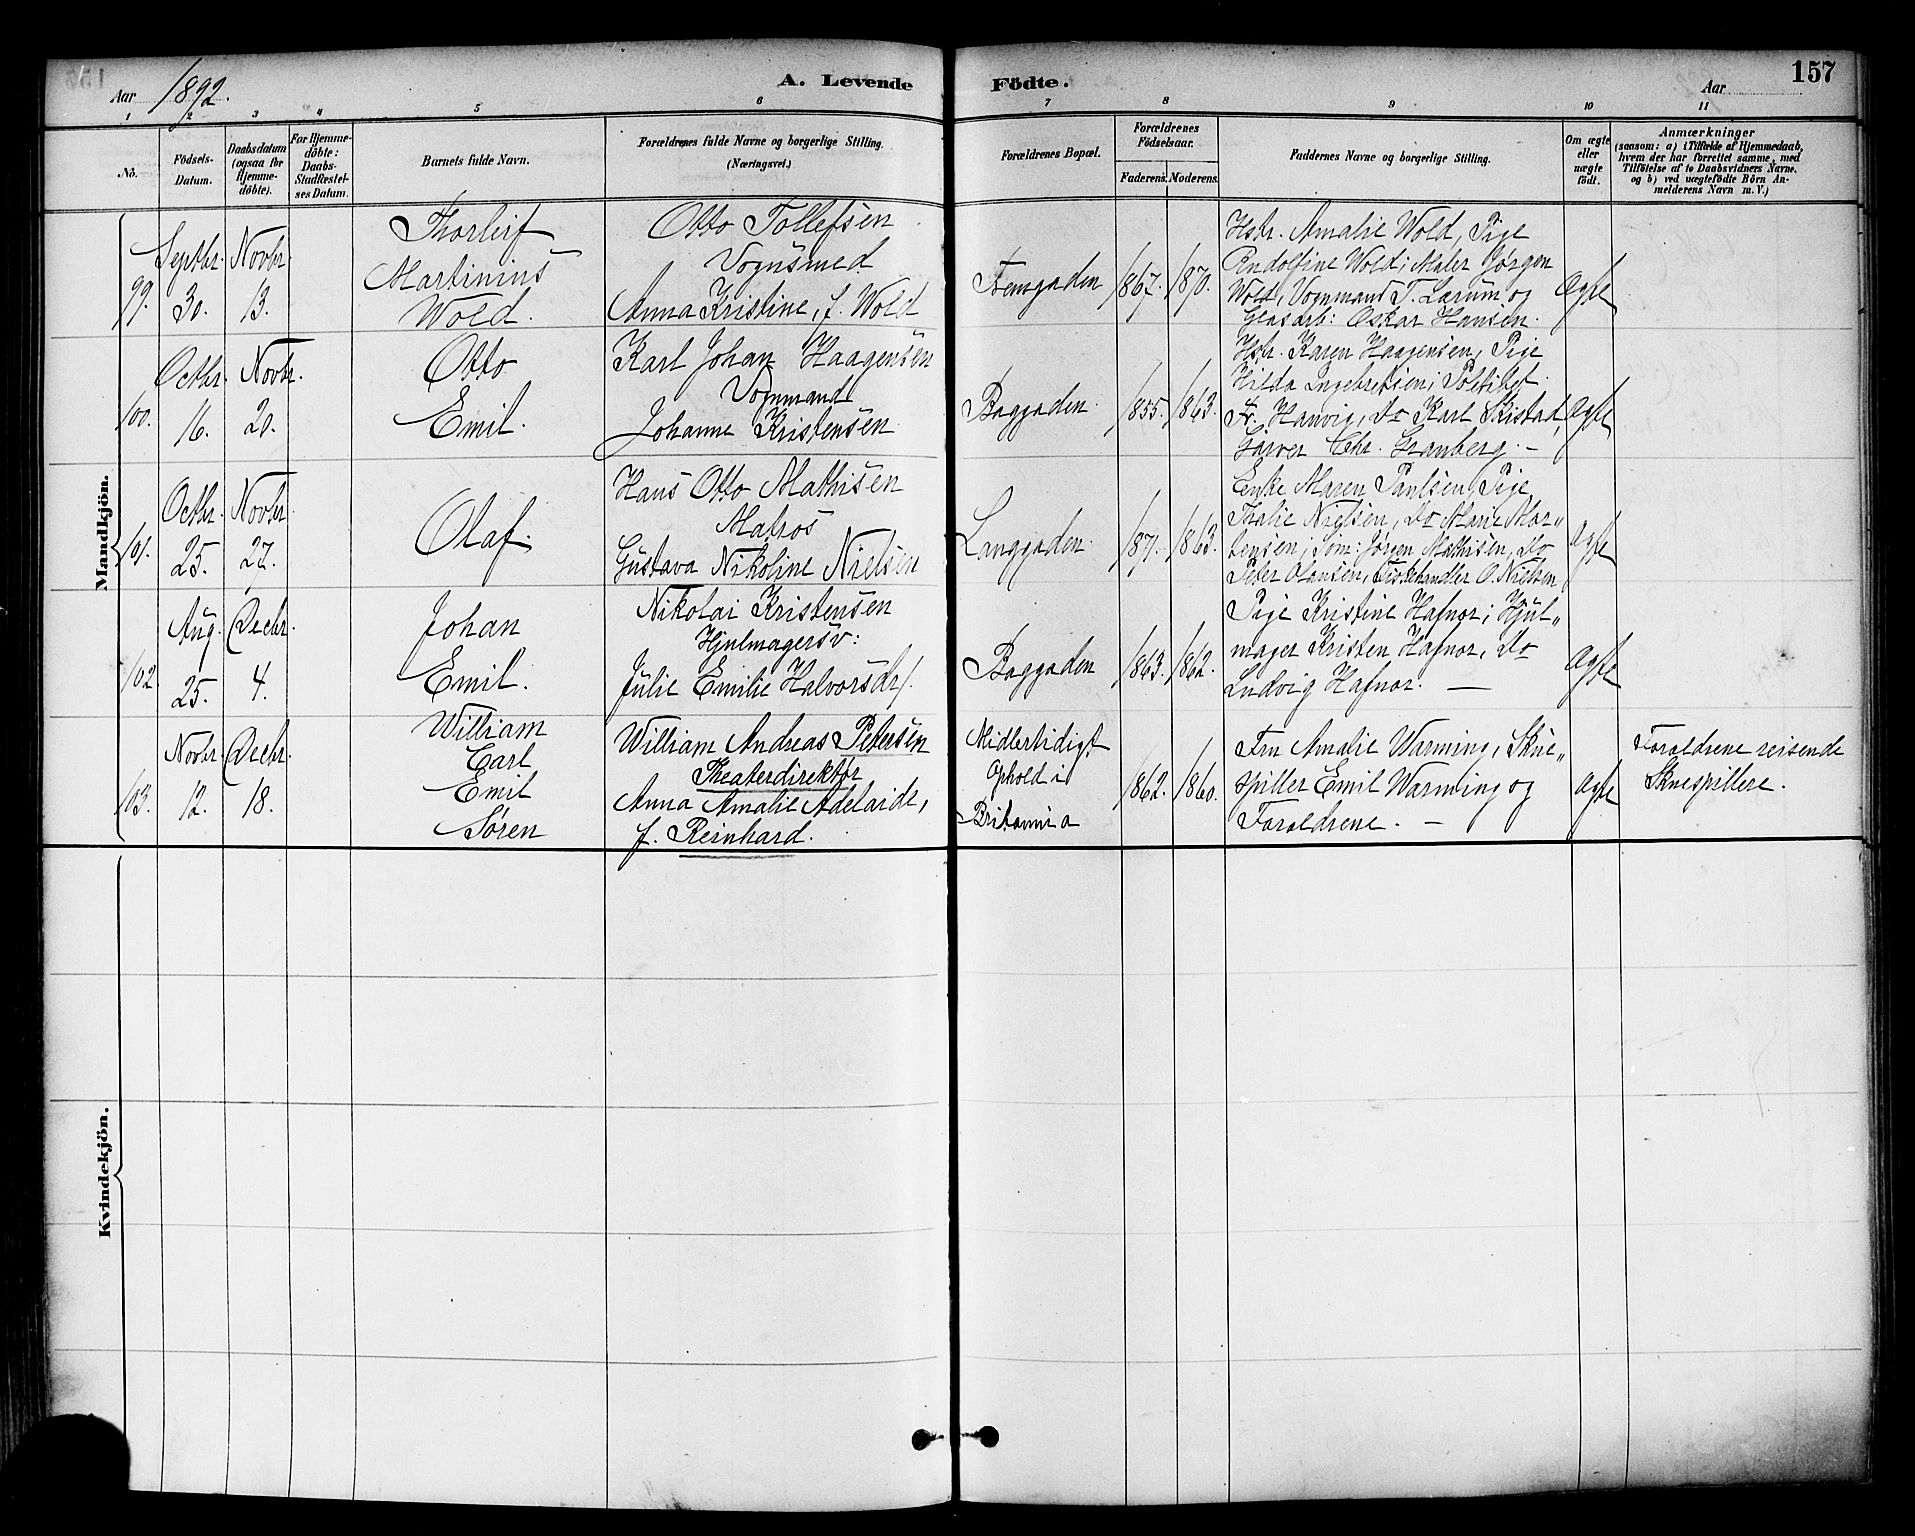 Aar 1892.
A. Levende
Födte.
Aar
157
1 2 3 4 5 6 7 8 9 10 11
No.
Födsels-
Datum.
Daabsdatum
(ogsaa for
Hjemme-
döbte).
For Hjemme-
döbte:
Daabs-
Stadfæstel-
ses Datum.
Barnets fulde Navn.
Forældrenes fulde Navne og borgerlige Stilling.
(Næringsvei.)
Forældrenes Bopæl.
Forældrenes
Födselsaar.
Faderens. Moderens.
Faddernes Navne og borgerlige Stilling.
Om ægte
eller
uægte
födt.
Anmærkninger
(saasom: a) i Tilfælde af Hjemmedaab,
hvem der har forrettet samme, med
Tilföielse af to Daabsvidners Navne,
og b) ved uægtefödte Börn An-
melderens Navn m. V.)
Mandkjön.
99.
Septbr.
30.
Novbr.
13.
Thorleif
Martinius
Wold.
Otto Tollefsen
Vognsmed
Anna Kristine, f. Wold
Femgaden
1867. 1870.
Hstr. Amalie Wold, Pige
Andolfine Wold; Maler Jørgen
Wold, Vognmand T. Lærum og
Glasarb: Oskar Hansen.
Ægte
100.
Octbr.
16.
Novbr.
20.
Otto
Emil.
Karl Johan Haagensen
Vognmand
Johanne Kristensen
Baggaden.
1855. 1863.
Hstr. Karen Haagensen, Pige
Hilda Ingebretsen; Politibet.
Fr. Hanvig, Do Karl Skistad,
Garver Chr. Granberg. –
Ægte
101.
Octbr.
25.
Novbr.
27.
Olaf.
Hans Otto Mathisen
Matros
Gustava Nikoline Nielsen
Langgaden.
1871. 1863.
Enke Maren Paulsen, Pige
Thalie Nielsen, Do Marie Mor„
tensen; Søm: Jørgen Mathisen, Do
Peter Olausen, Fiskehandler O. Nielsen
Ægte
102.
Aug.
25.
Decbr.
4.
Johan
Emil.
Nikolai Kristensen
Hjulmagersv:
Julie Emilie Halvorsdr/.
Baggaden
1863. 1862.
Pige Kristine Hafnor; Hjul„
mager Kristen Hafnor, Do
Ludvig Hafnor. —
Ægte
103.
Novbr.
12.
Decbr.
18.
William
Carl
Emil
Søren
William Andreas Petersen
Theaterdirektør
Anna Amalie Adelaide,
f. Reinhard.
Midlertidigt
Ophold i
Britannia
1862. 1860.
Fru Amalie Warming, Skue„
spiller Emil Warming og
Forældrene. –
Ægte
Forældrene reisende
Skuespillere.
Kvindekjön.